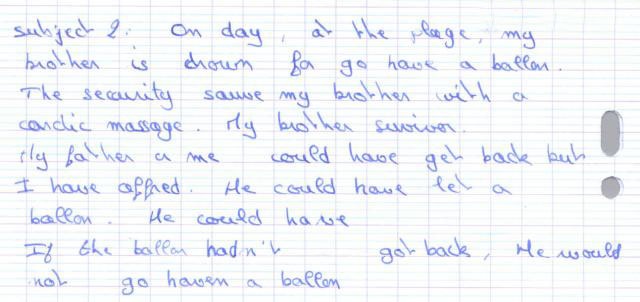 subject 2: On day, at the plage, my
brother is drown for go have a ballon.
The security sauve my brother with a
cardic massage. My brother survivor.
My father or me could have get back but
I have affred. He could have let a
ballon. He could have
If the ballon hadn't got back, He would
not go haven a ballon